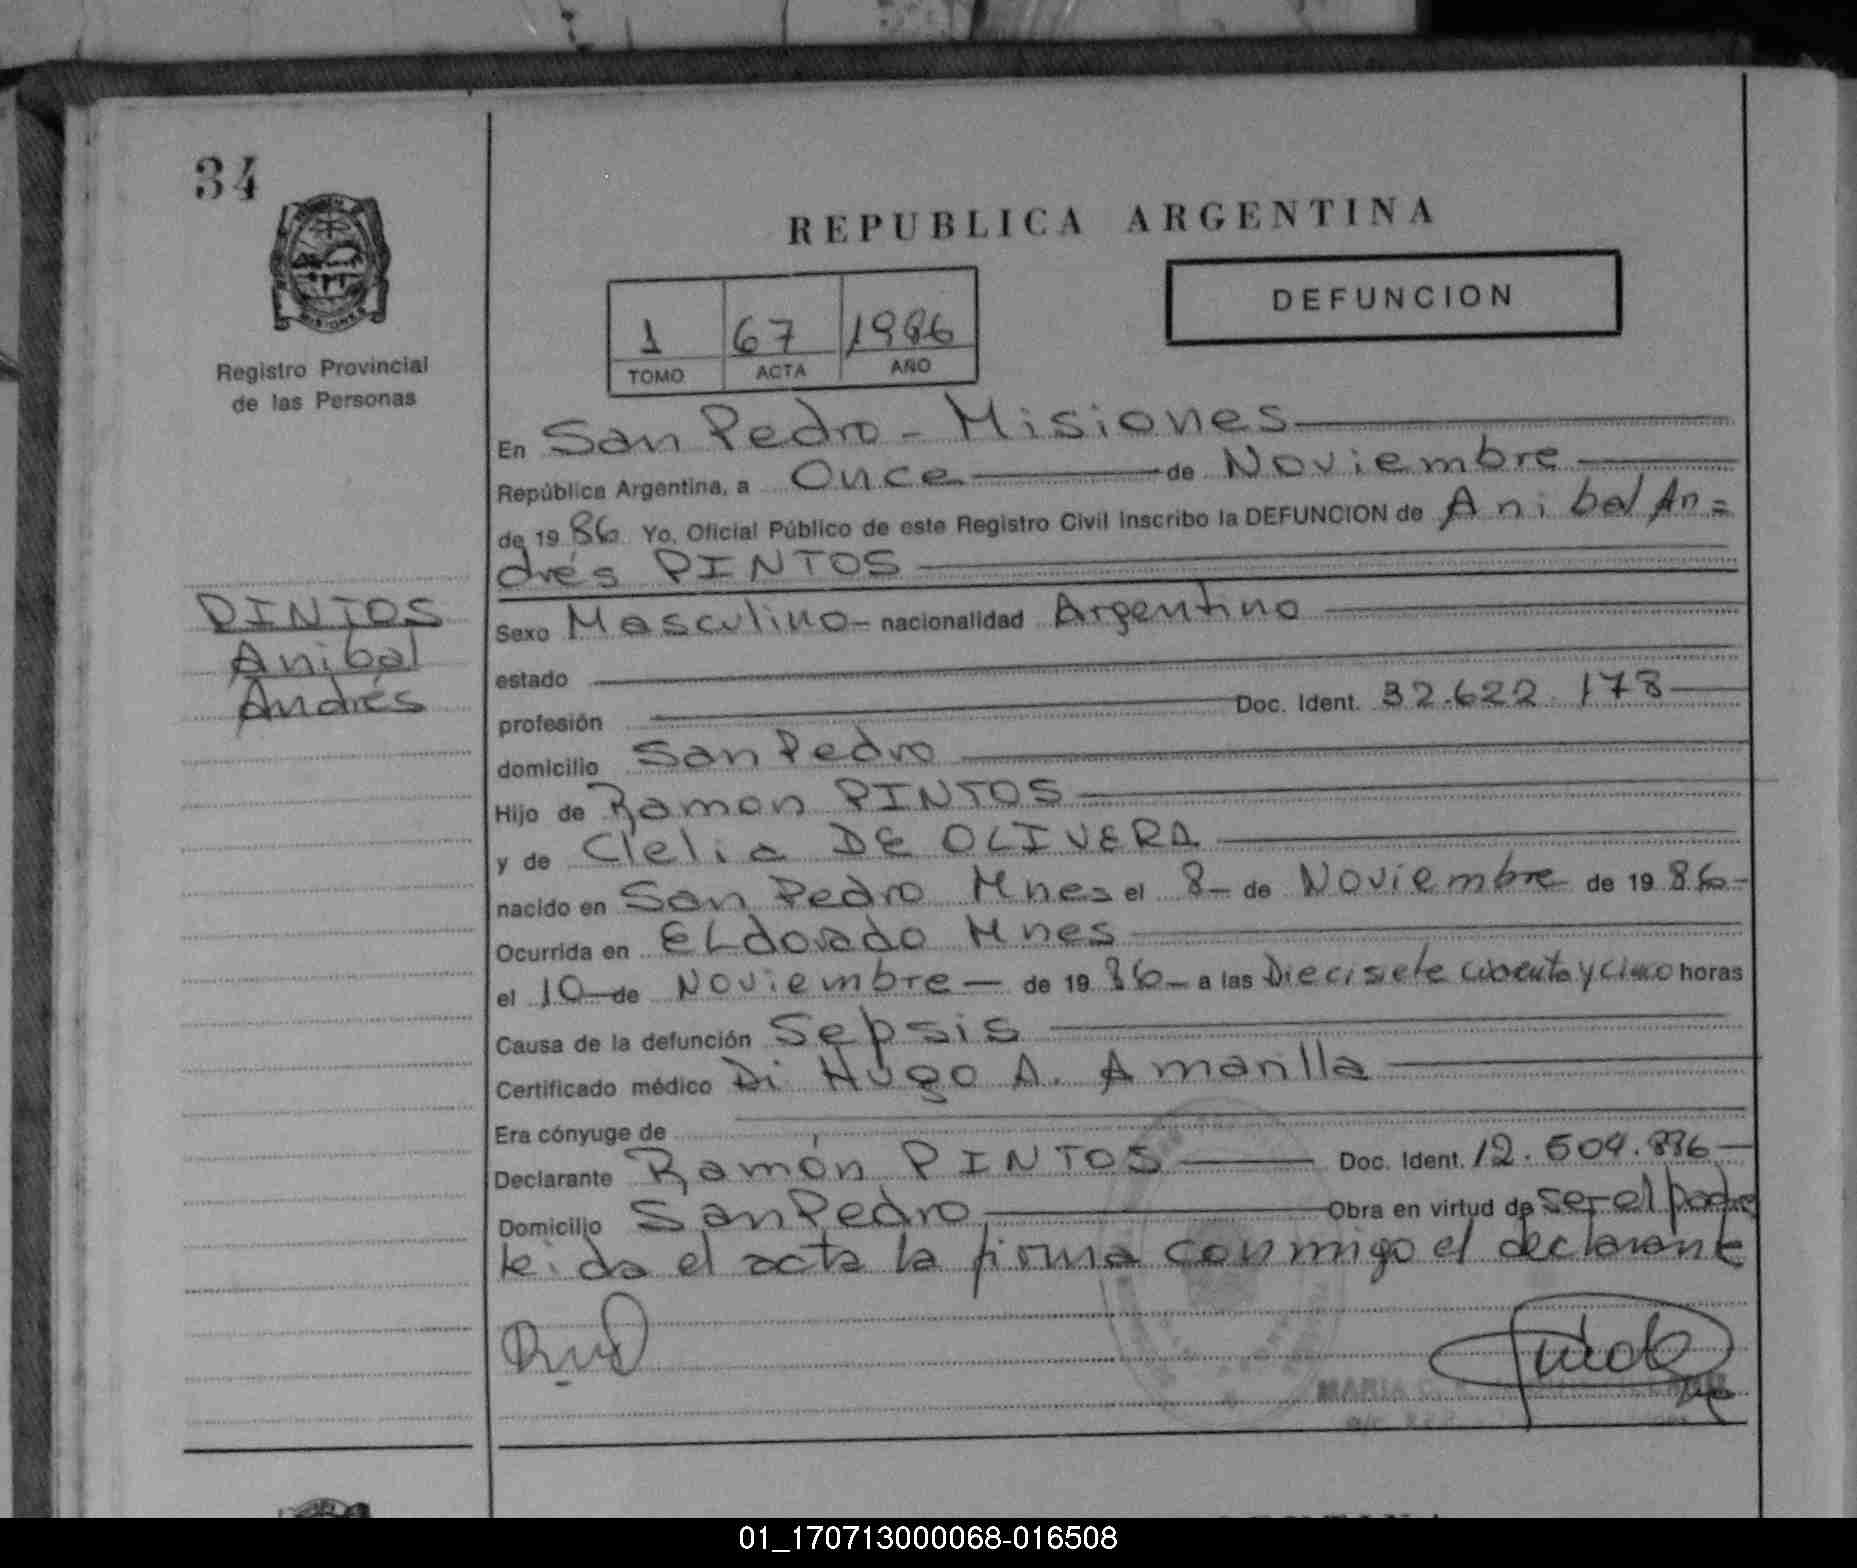 34
MISIONES
Registro Provincial
de las Personas
REPUBLICA ARGENTINA
1 67 1986
TOMO ACTA AÑO
DEFUNCION
PINTOS
Anibal
Andrés
En San Pedro - Misiones
República Argentina, a Once de Noviembre
de 1986 Yo, Oficial Público de este Registro Civil inscribo la DEFUNCION de Anibal An=
drés PINTOS
Sexo Masculino nacionalidad Argentino
estado
profesión Doc. Ident. 32.622.178
domicilio San Pedro
Hijo de Ramon PINTOS
y de Clelia DE OLIVERA
nacido en San Pedro Mnes el 8 de Noviembre de 1986
Ocurrida en ELdorado Mnes
el 10 de Noviembre de 1986 a las Diecisiete cincuenta y cinco horas
Causa de la defunción Sepsis
Certificado médico Di Hugo A. Amarilla
Era cónyuge de
Declarante Ramón PINTOS Doc. Ident. 12.504.886
Domicilio San Pedro Obra en virtud de ser el padre
leida el acta la firma conmigo el declarante
MARIA
01_170713000068-016508